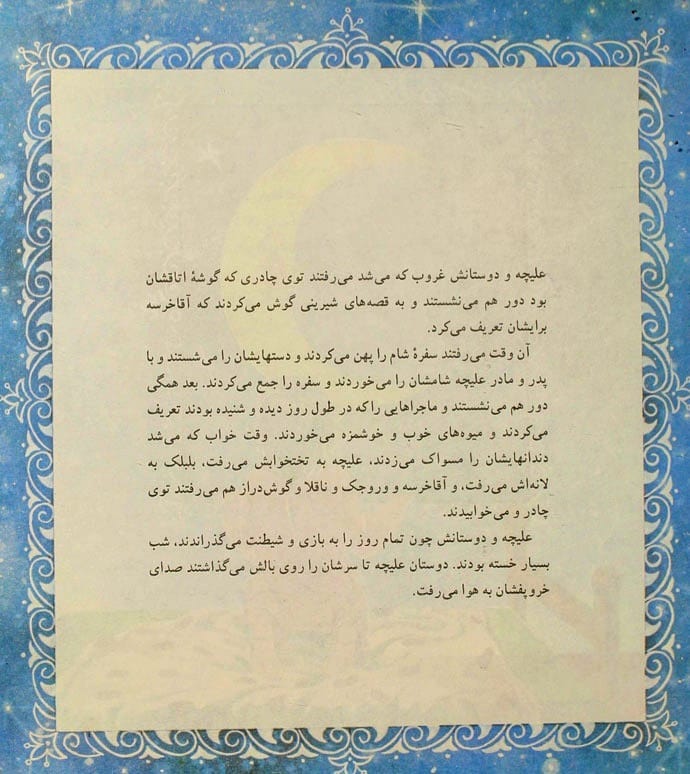 علیچه و دوستانش غروب که می‌شد می‌رفتند توی چادری که گوشهٔ اتاقشان
بود دور هم می‌نشستند و به قصه‌های شیرینی گوش می‌کردند که آقاخرسه
برایشان تعریف می‌کرد.
آن وقت می‌رفتند سفرهٔ شام را پهن می‌کردند و دستهایشان را می‌شستند و با
پدر و مادر علیچه شامشان را می‌خوردند و سفره را جمع می‌کردند. بعد همگی
دور هم می‌نشستند و ماجراهایی را که در طول روز دیده و شنیده بودند تعریف
می‌کردند و میوه‌های خوب و خوشمزه می‌خوردند. وقت خواب که می‌شد
دندانهایشان را مسواک می‌زدند، علیچه به تختخوابش می‌رفت، بلبلک به
لانه‌اش می‌رفت، و آقاخرسه و وروجک و ناقلا و گوش‌دراز هم می‌رفتند توی
چادر و می‌خوابیدند.
علیچه و دوستانش چون تمام روز را به بازی و شیطنت می‌گذراندند، شب
بسیار خسته بودند. دوستان علیچه تا سرشان را روی بالش می‌گذاشتند صدای
خروپفشان به هوا می‌رفت.